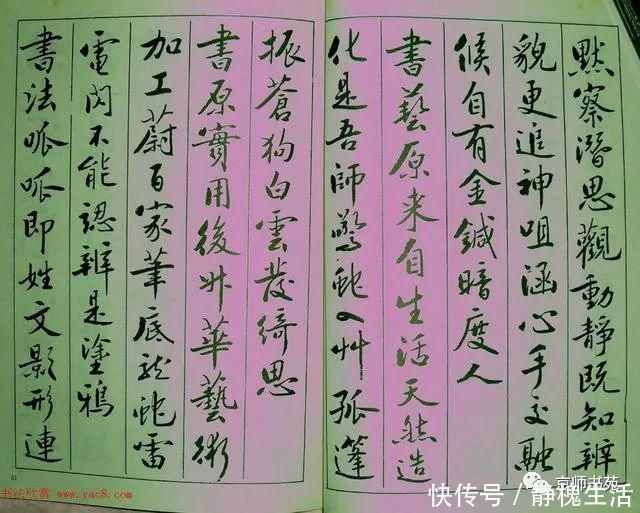 默察潛思觀動靜既知辨
貌更追神咀涵心手交融
候自有金鍼暗度人
書藝原来自生活天然造
化是吾師驚蛇入艸孤蓬
振蒼狗白雲發綺思
書原實用後升華藝術
加工蔚百家筆底龍蛇雷
電閃不能認辨是塗鴉
書法呱呱即姓文影形連
31
书法欣赏 www.yac8.com
京师书苑
快传号/静槐生活